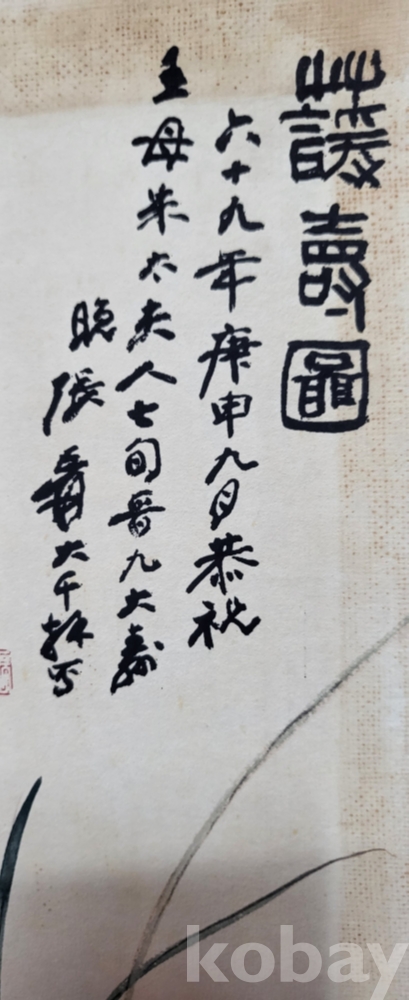 蘐壽圖
六十九年庚申九月恭祝
王母朱太夫人七旬晉九大壽
晚張爰大千拜写
kobay